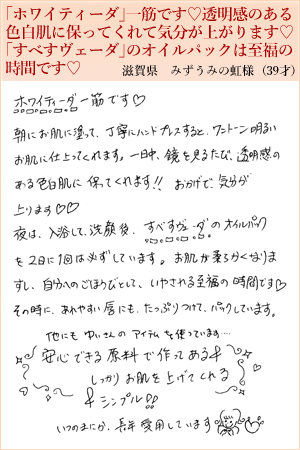 「ホワイティーダ」一筋です♡透明感のある
色白肌に保ってくれて気分が上がります♡
「すべすヴェーダ」のオイルパックは至福の
時間です♡
滋賀県　みずうみの虹様（39才）
ホワイティーダ一筋です♡
朝にお肌に塗って、丁寧にハンドプレスすると、ワントーン明るい
お肌に仕上ってくれます。一日中、鏡を見るたび、透明感の
ある色白肌に保てくれます!! おかげで気分が
上ります♡♡
夜は、入浴して、洗顔後、すべすヴェーダのオイルパック
を2日に1回は必ずしています。お肌が柔らかくなりま
すし、自分へのごほうびとして、いやされる至福の時間です♡
その時に、あれやすい唇にも、たっぷりつけて、パックしています。
他にも ゆいさんの アイテムを使っています…
安心できる原料で作ってある&
しっかりお肌を上げてくれる
&シンプル!!
いつのまにか、長年愛用しています